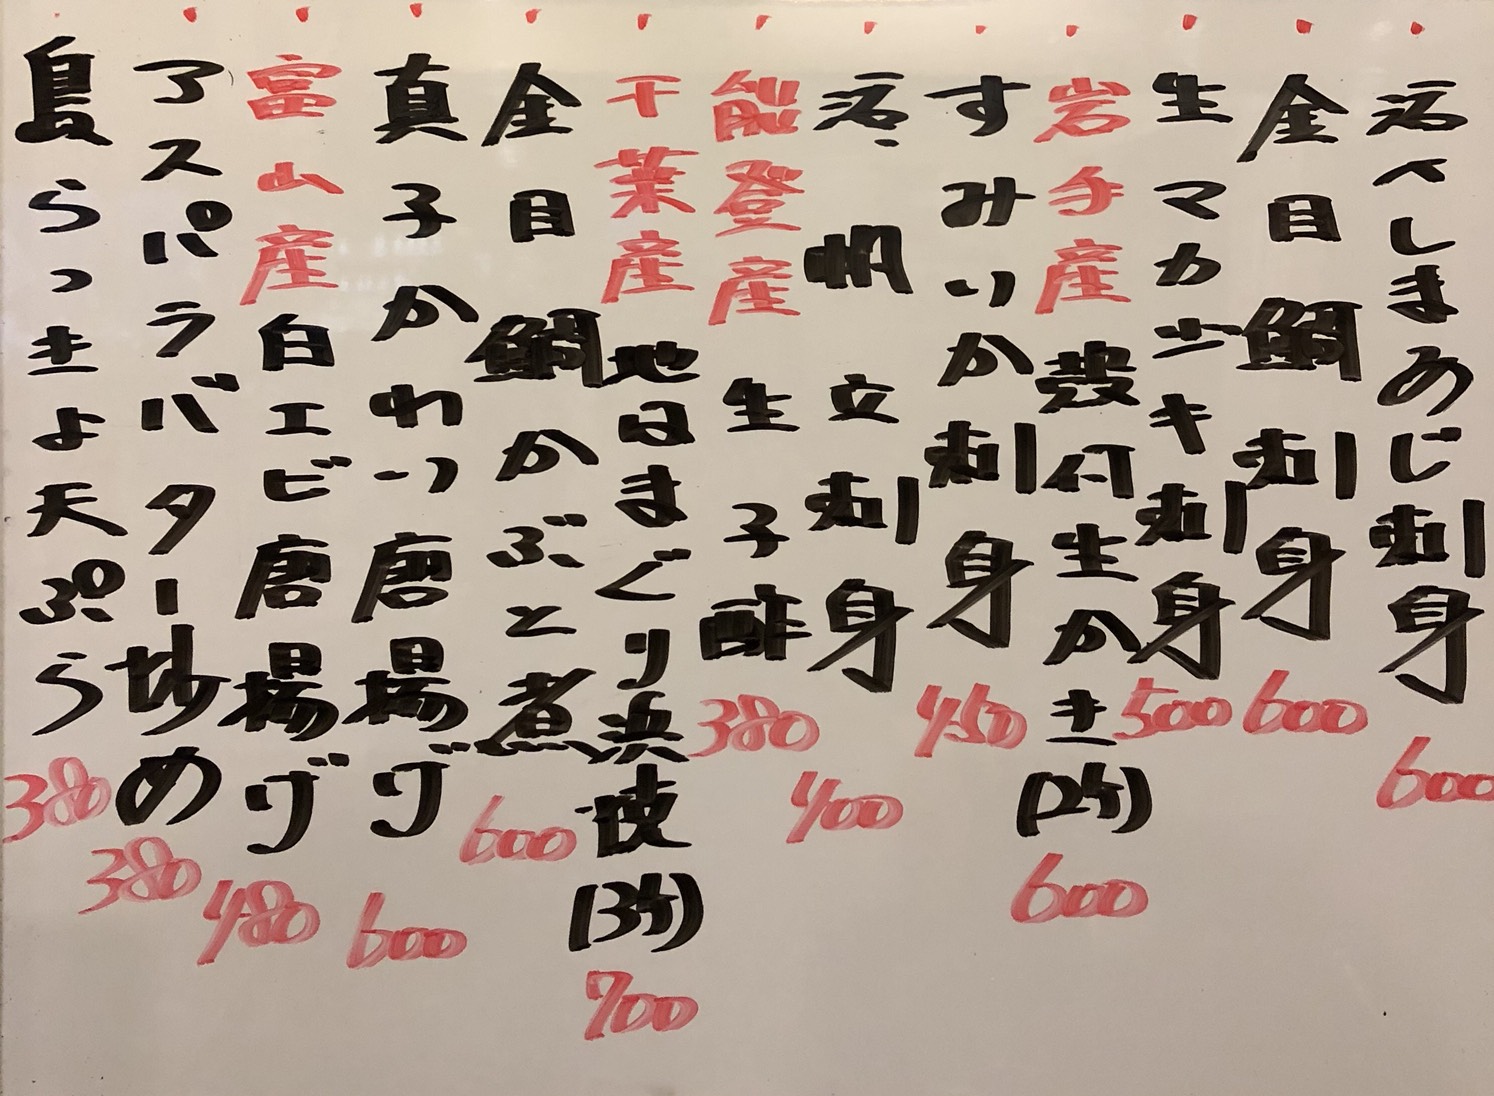 活〆しまあじ刺身 600
金目鯛刺身 600
生マカジキ刺身 500
岩手産殻付生かき(2ケ) 600
すみいか刺身 450
活帆立刺身 400
能登産生子酢 380
千葉産地はまぐり浜焼(3ケ) 700
金目鯛かぶと煮 600
真子かれい唐揚げ 600
富山産白エビ唐揚げ 480
アスパラバター炒め 380
島らっきょ天ぷら 380